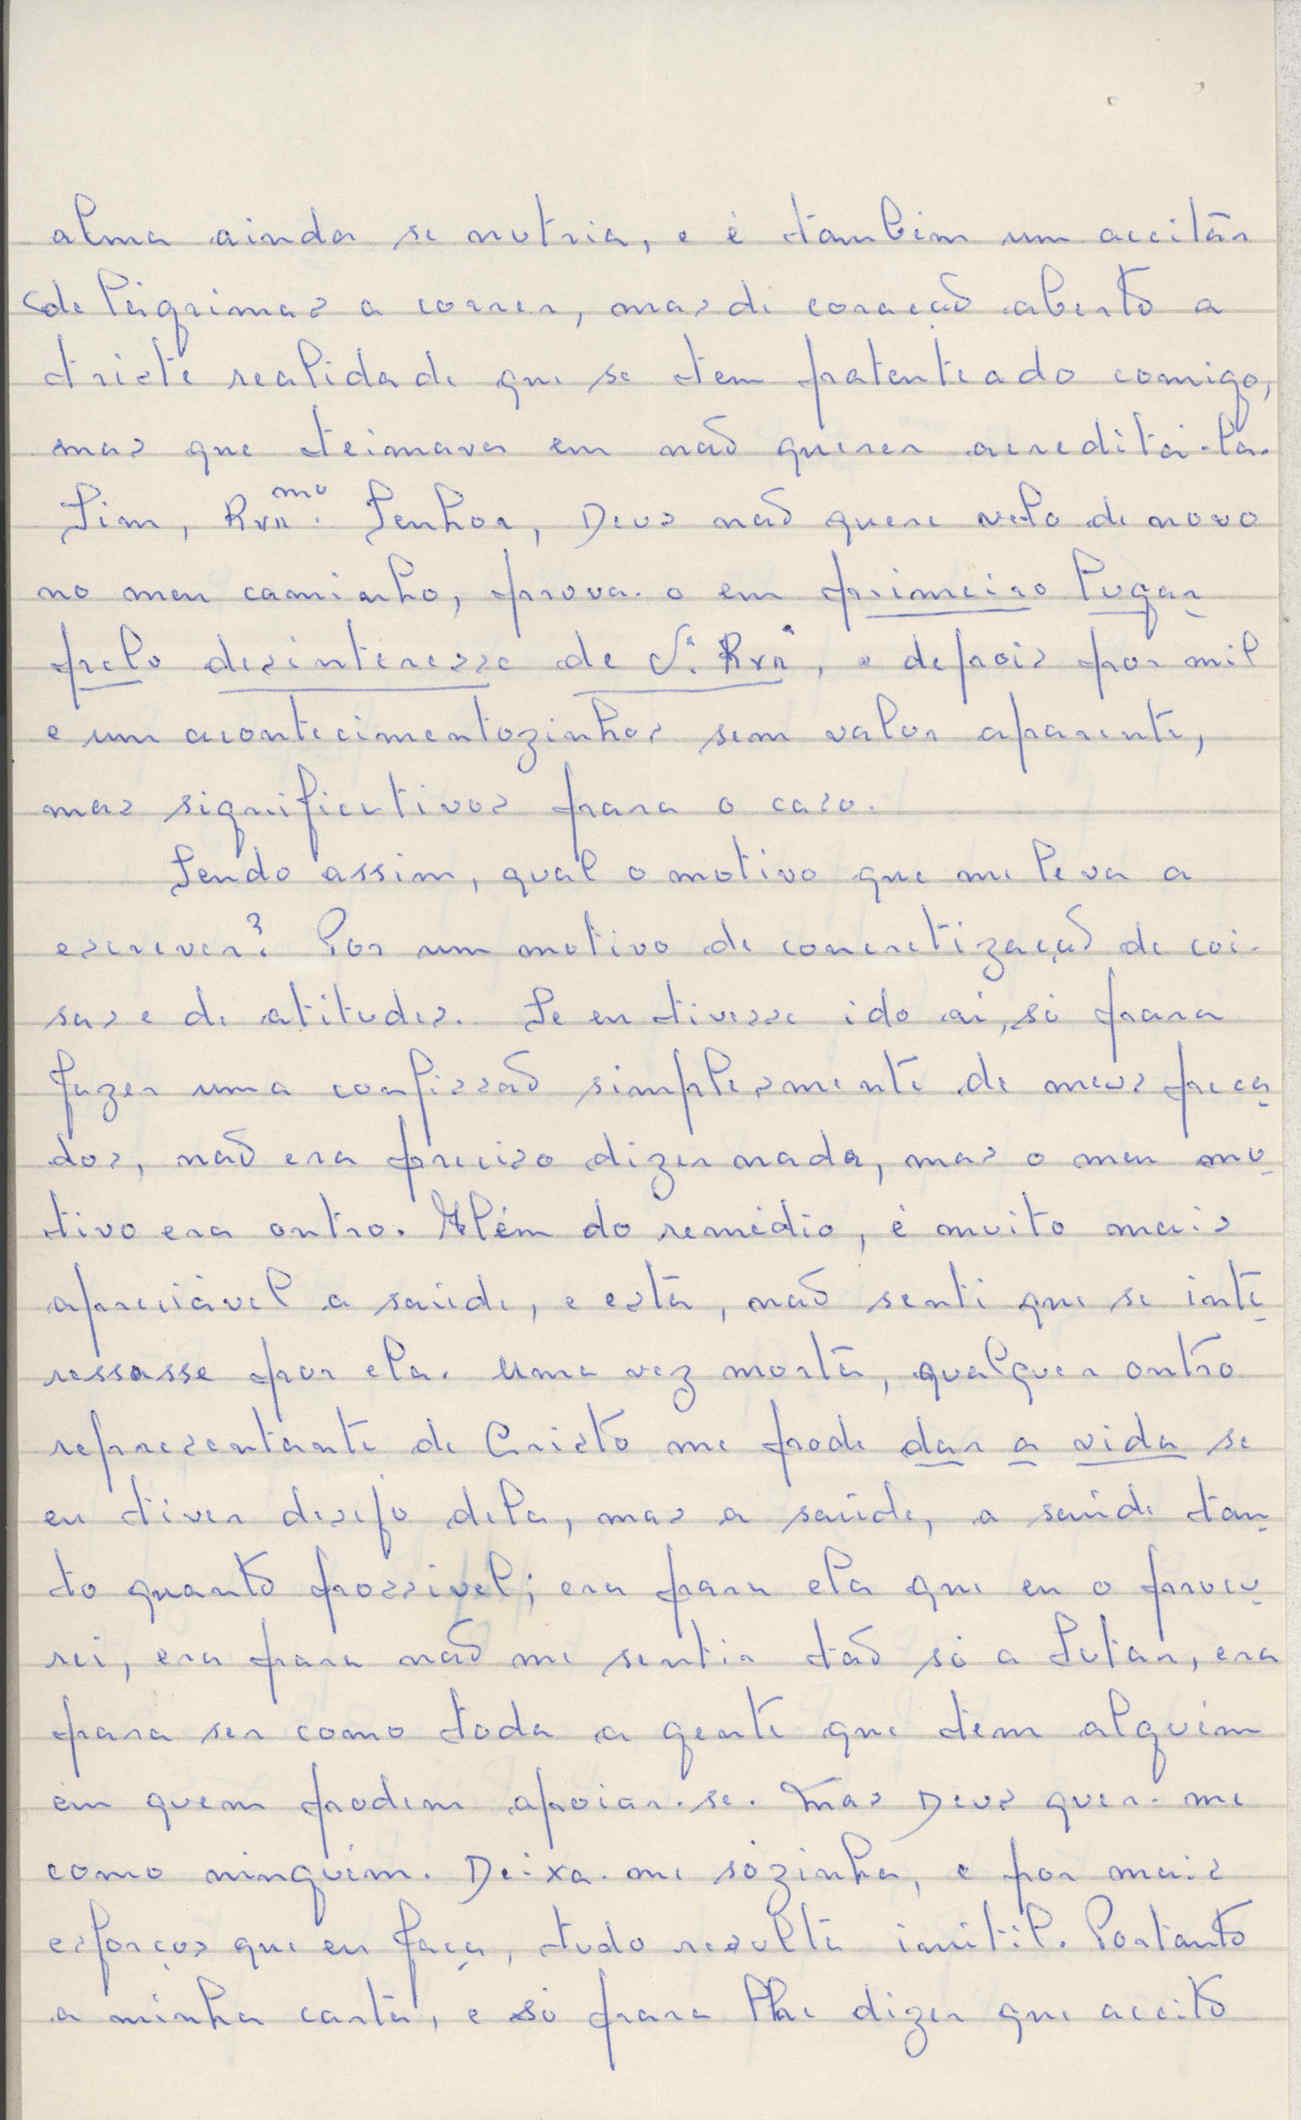 alma ainda se nutria, e é também um aceitar
de lágrimas a correr, mas de coração aberto a
triste realidade que se tem patenteado comigo,
mas que teimava em não querer acreditá-la.
Sim, Rvn.mo Senhor, Deus não quere vê-lo de novo
no meu caminho, prova-o em primeiro lugar
pelo desinteresse de S.ª Rvn.ª, e depois por mil
e um acontecimentozinhos sem valor aparente,
mas significativos para o caso.
Sendo assim, qual o motivo que me leva a
escrever? Por um motivo de concretização de coi-
sas e de atitudes. Se eu tivesse ido aí, só para
fazer uma confissão simplesmente de meus peca-
dos, não era preciso dizer nada, mas o meu mo-
tivo era outro. Além do remédio, é muito mais
apreciável a saúde, e esta, não senti que se inte-
ressasse por ela. Uma vez morta, qualquer outro
representante de Cristo me pode dar a vida se
eu tiver desejo dela, mas a saúde, a saúde tan-
to quanto possível; era para ela que eu o procu-
rei, era para não me sentir tão só a lutar, era
para ser como toda a gente que tem alguém
em quem podem apoiar-se. Mas Deus quer-me
como ninguém. Deixa-me sòzinha, e por mais
esforços que eu faça, tudo resulta inútil. Portanto
a minha carta, e só para lhe dizer que aceito